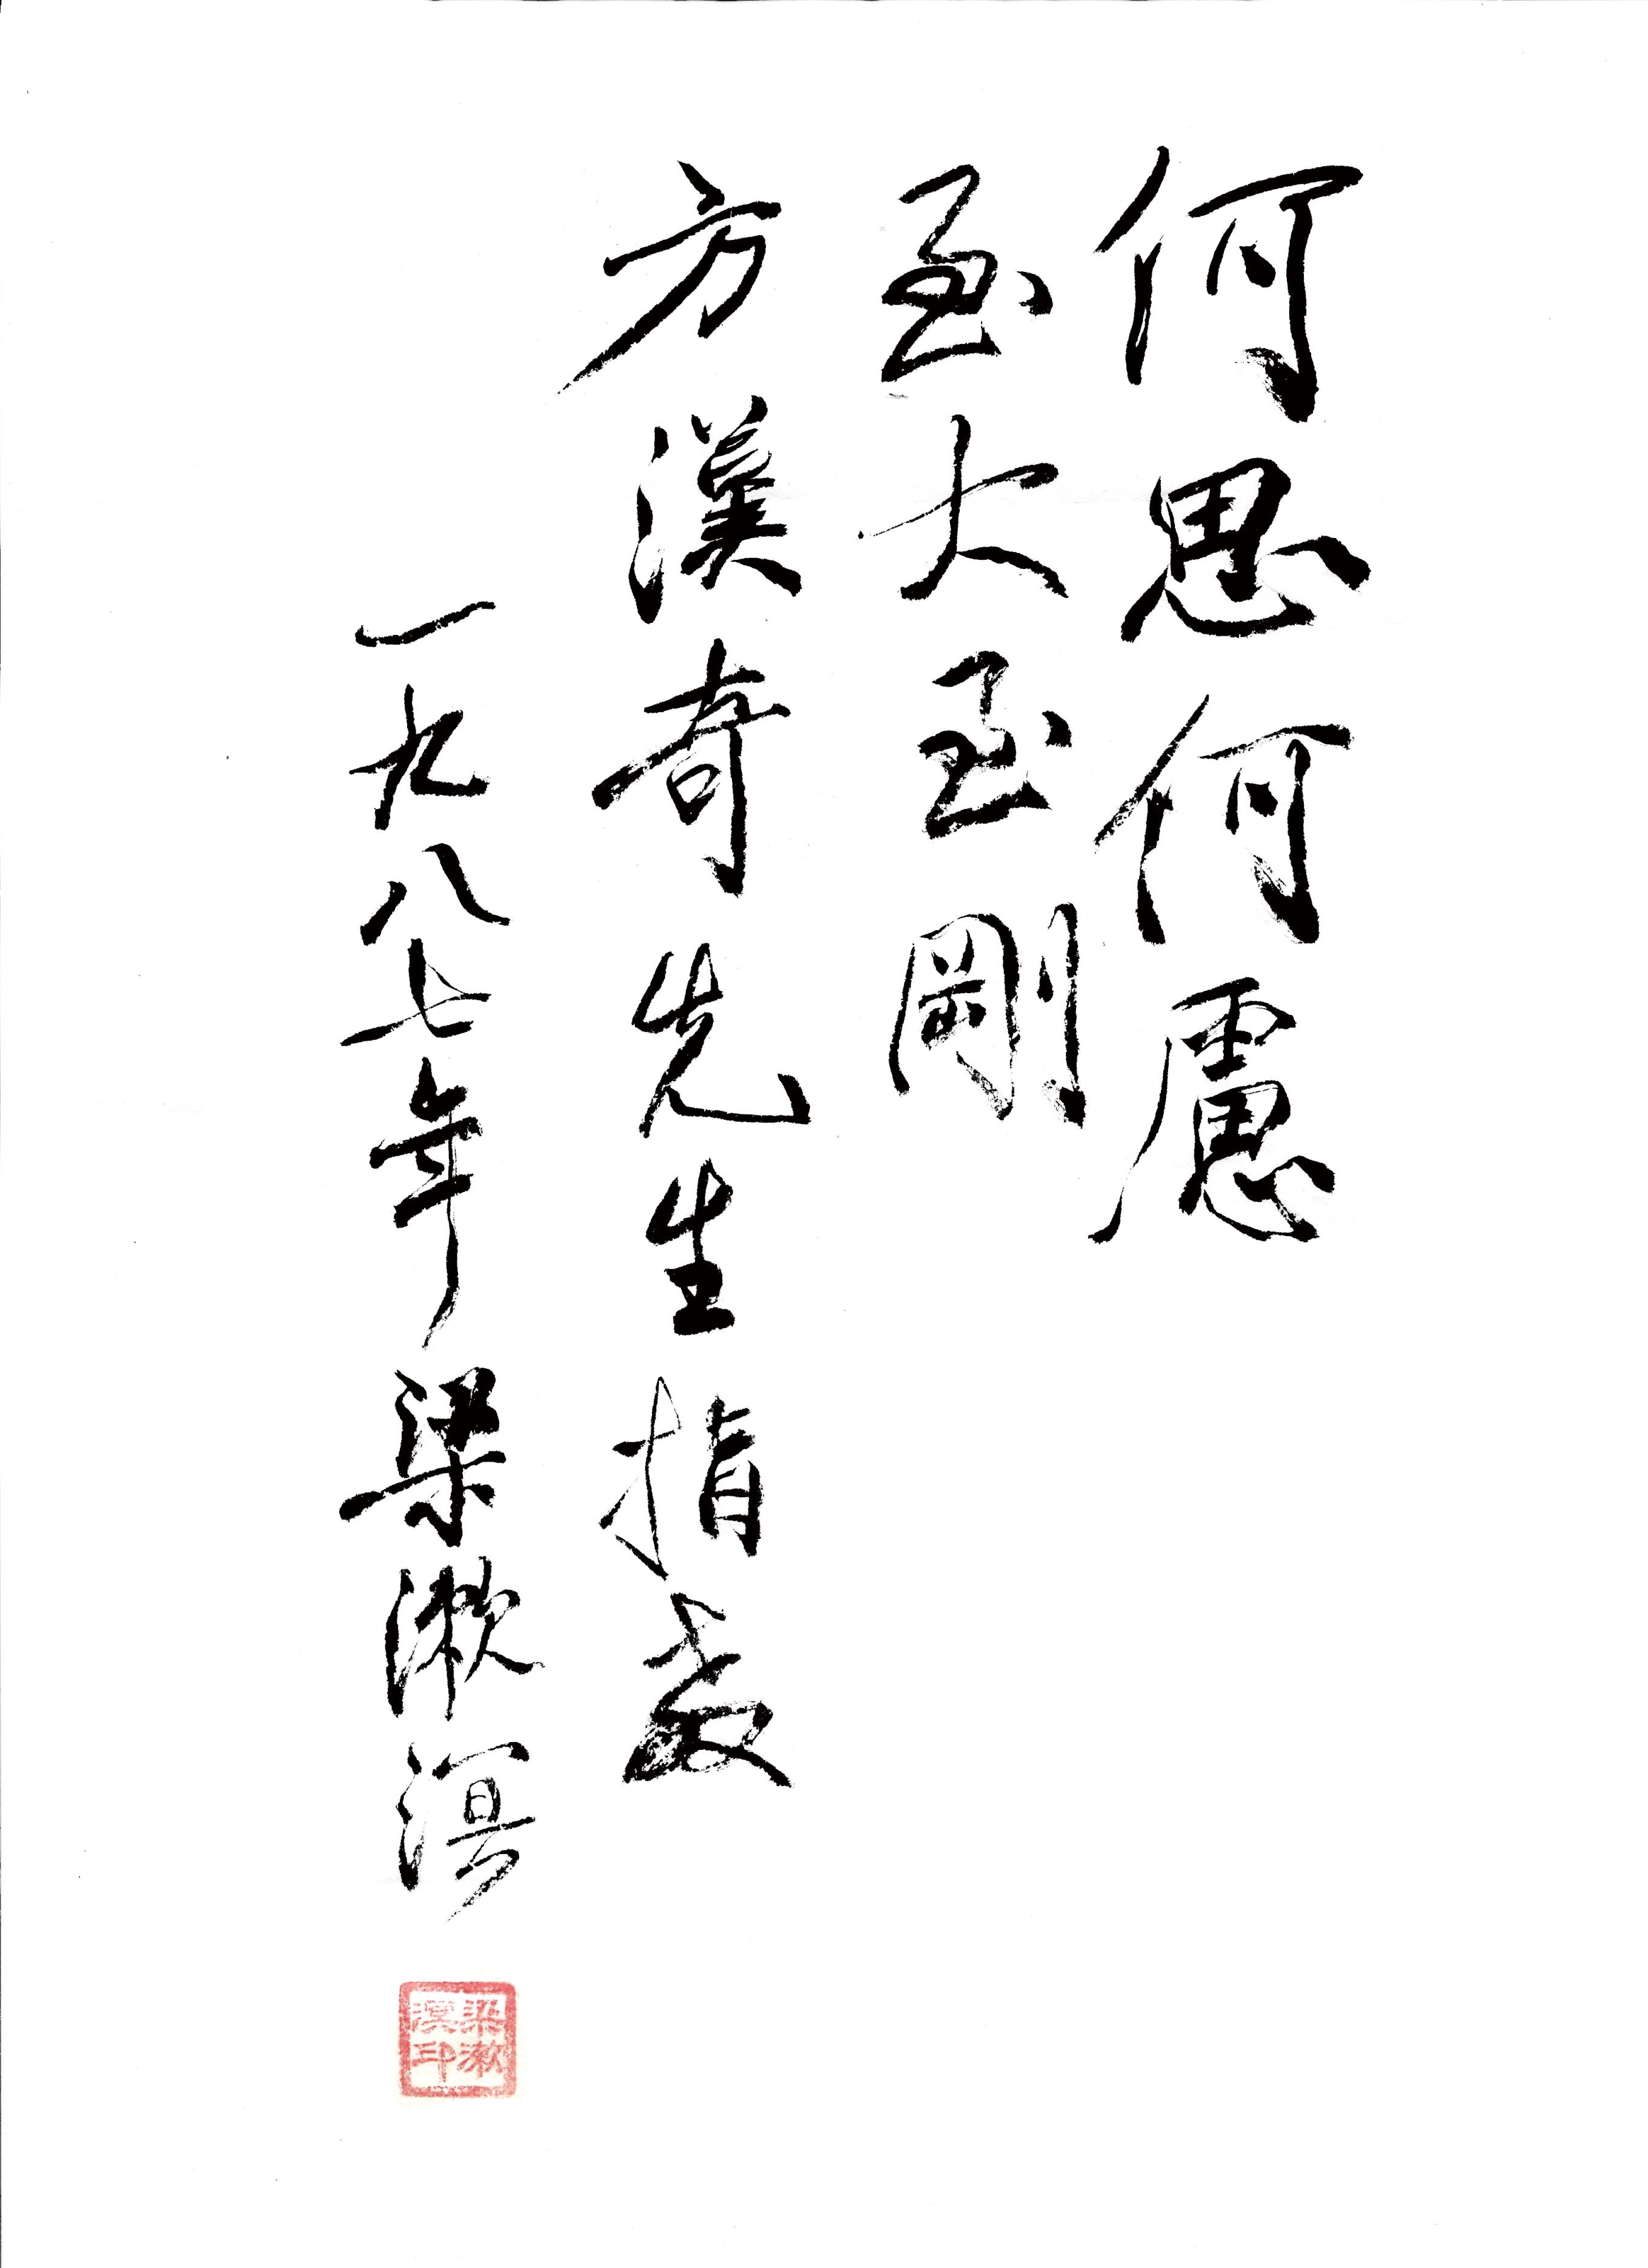 何思何慮
至大至剛
方漢奇先生指教
一九八七年 梁漱溟
梁漱溟印